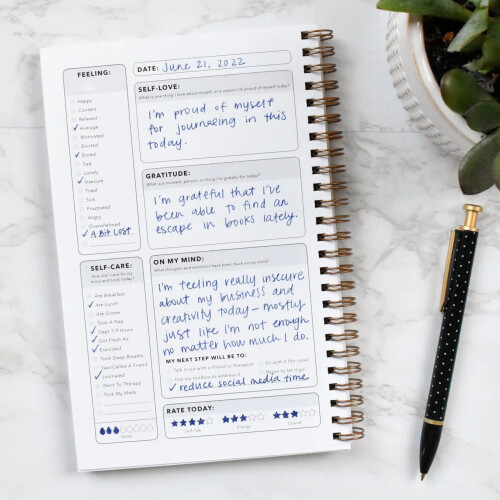 FEELING:
Happy
Content
Relaxed
Average
Motivated
Excited
Bored
Sad
Lonely
Insecure
Tired
Sick
Frustrated
Angry
Overwhelmed
A Bit Lost
SELF-CARE:
How did I care for my
mind and body today?
Ate Breakfast
Ate Lunch
Ate Dinner
Took A Nap
Slept 7-9 Hours
Got Fresh Air
Exercised
Took Deep Breaths
Saw/Called A Friend
Journaled
Went To Therapy
Took My Meds
Water
DATE: June 21, 2022
SELF-LOVE:
What is one thing I love about myself, or a reason I'm proud of myself today?
I'm proud of myself
for journaling in this
today.
GRATITUDE:
What is a moment, person, or thing I'm grateful for today?
I'm grateful that I've
been able to find an
escape in books lately.
ON MY MIND:
What thoughts and emotions have been stuck on my mind?
I'm feeling really insecure
about my business and
creativity today - mostly
just like I'm not enough
no matter how much I do.
MY NEXT STEP WILL BE TO:
Talk it out with a friend or therapist
Use my toolbox to address it
reduce social media time
RATE TODAY:
Self-Talk
Energy
Overall